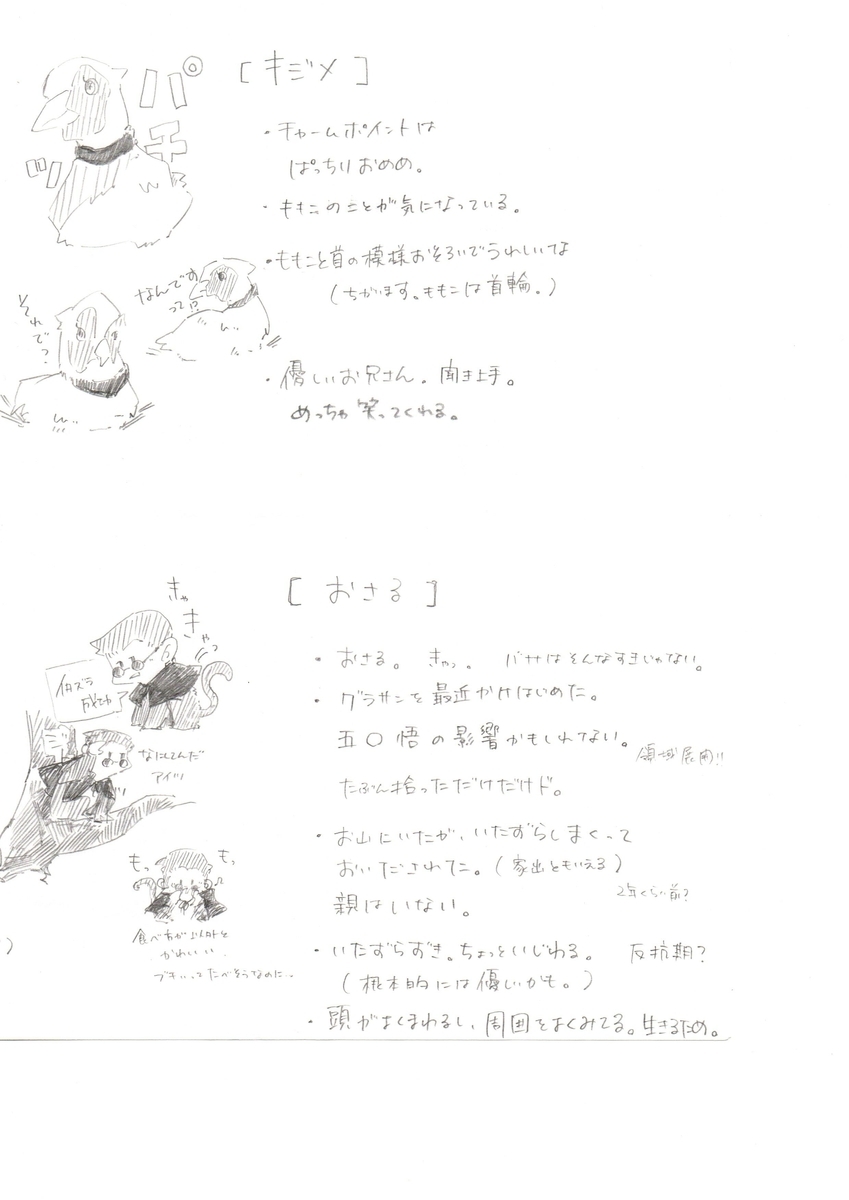 [キジメ]
パチッ
・チャームポイントは
ぱっちりおめめ。
・ももこのことが気になっている。
・ももこと首の模様おそろいでうれしいな
(ちがいます。ももこは首輪。)
なんです
って!?
それで?
・優しいお兄さん。聞き上手。
めっちゃ笑ってくれる。
[おさる]
きゃ
きゃっ
イタズラ
成功
・おさる。 きゃっ。 バナナはそんなすきじゃない。
・グラサンを最近かけはじめた。
五〇悟の影響かもしれてない。
領域展開!!
たぶん拾っただけだけド。
なにしてんだ
アイツ
・お山にいたが、いたずらしまくって
おいだされてた。(家出ともいえる)
2年くらい前?
親はいない。
もっ
もっ
食べ方が以外と
かわいい
ブキいってたべそうなのに…
・いたずらずき。ちょっといじわる。 反抗期?
(根本的には優しいかも。)
・頭がよくまわるし、周囲をよくみてる。生きるため。
)